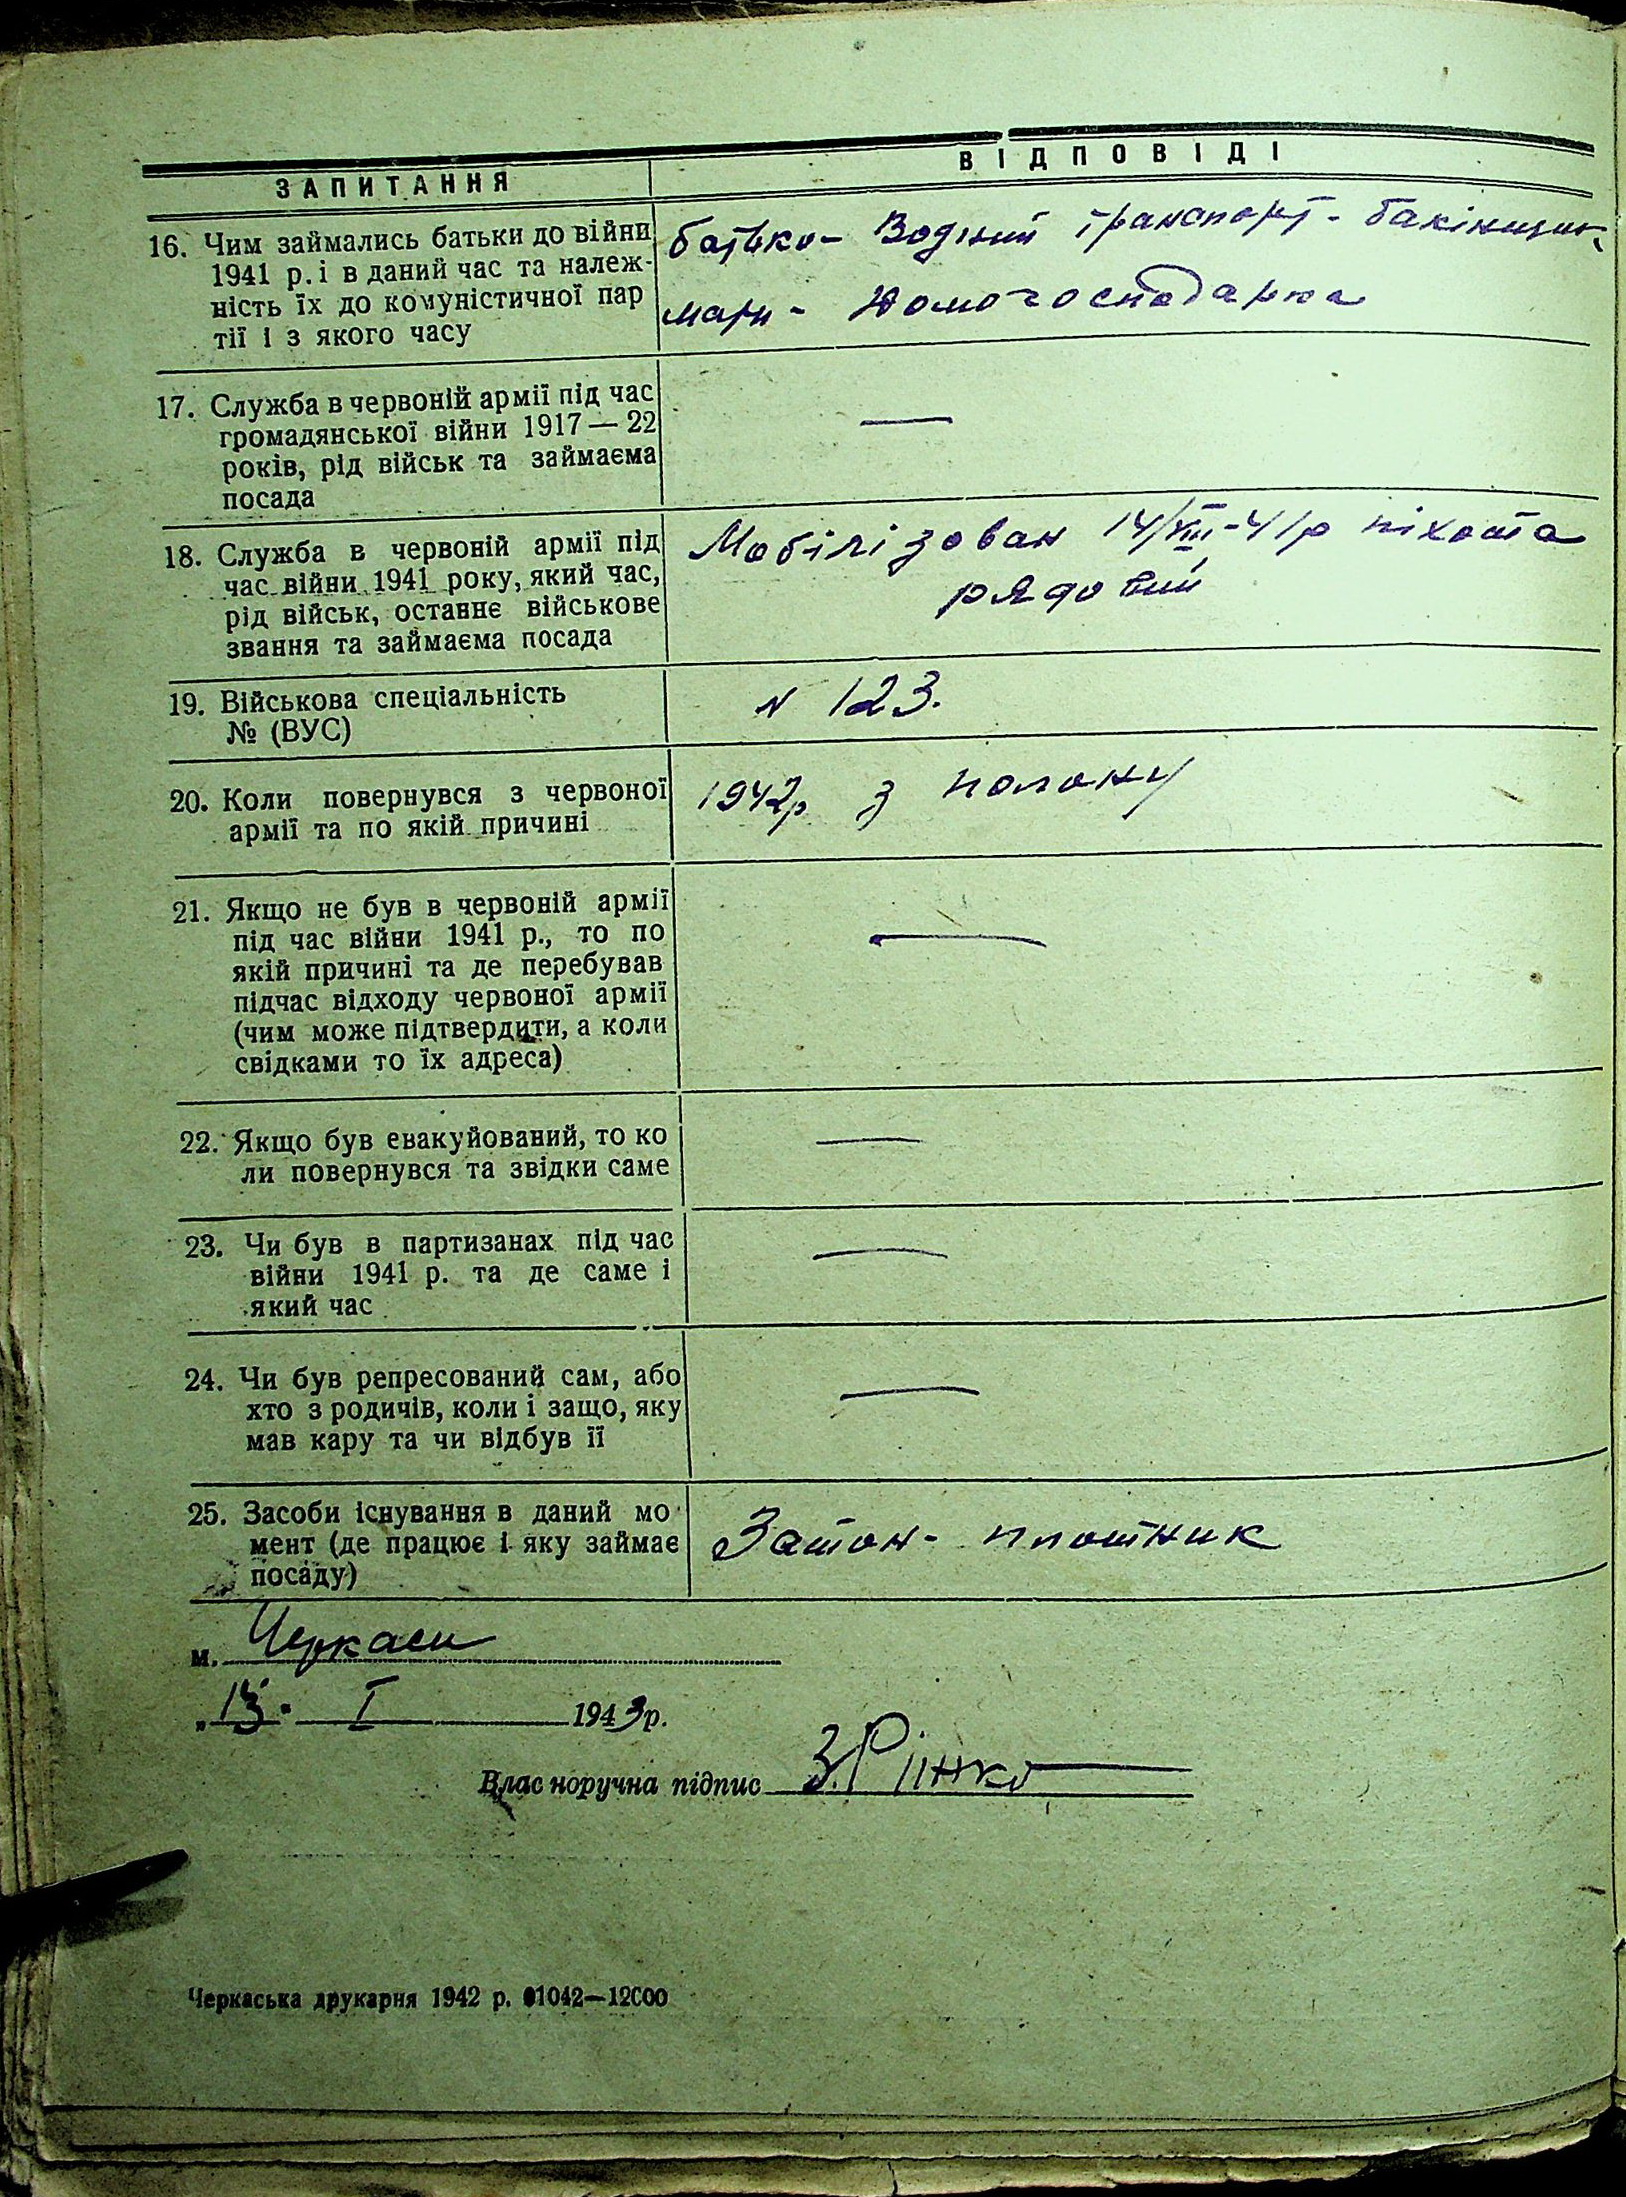 ЗАПИТАННЯ
ВІДПОВІДІ
16. Чим займались батьки до війни
1941 р. і в даний час та належ-
ність їх до комуністичної пар
тії і з якого часу
батько - Водний транспорт - бакінщик
мати - Домогосподарка
17. Служба в червоній армії під час
громадянської війни 1917 — 22
років, рід військ та займаєма
посада
—
18. Служба в червоній армії під
час війни 1941 року, який час,
рід військ, останнє військове
звання та займаєма посада
Мобілізован 14/VIII-41р піхота
рядовий
19. Військова спеціальність
№ (ВУС)
N 123.
20. Коли повернувся з червоної
армії та по якій причині
1942р з полону
21. Якщо не був в червоній армії
під час війни 1941 р., то по
якій причині та де перебував
підчас відходу червоної армії
(чим може підтвердити, а коли
свідками то їх адреса)
—
22. Якщо був евакуйований, то ко
ли повернувся та звідки саме
—
23. Чи був в партизанах під час
війни 1941 р. та де саме і
який час
—
24. Чи був репресований сам, або
хто з родичів, коли і защо, яку
мав кару та чи відбув її
—
25. Засоби існування в даний мо
мент (де працює і яку займає
посаду)
Затон - плотник
м. Черкаси
„13" I 1943р.
Влас норучна підпис
Черкаська друкарня 1942 р. 01042—12000